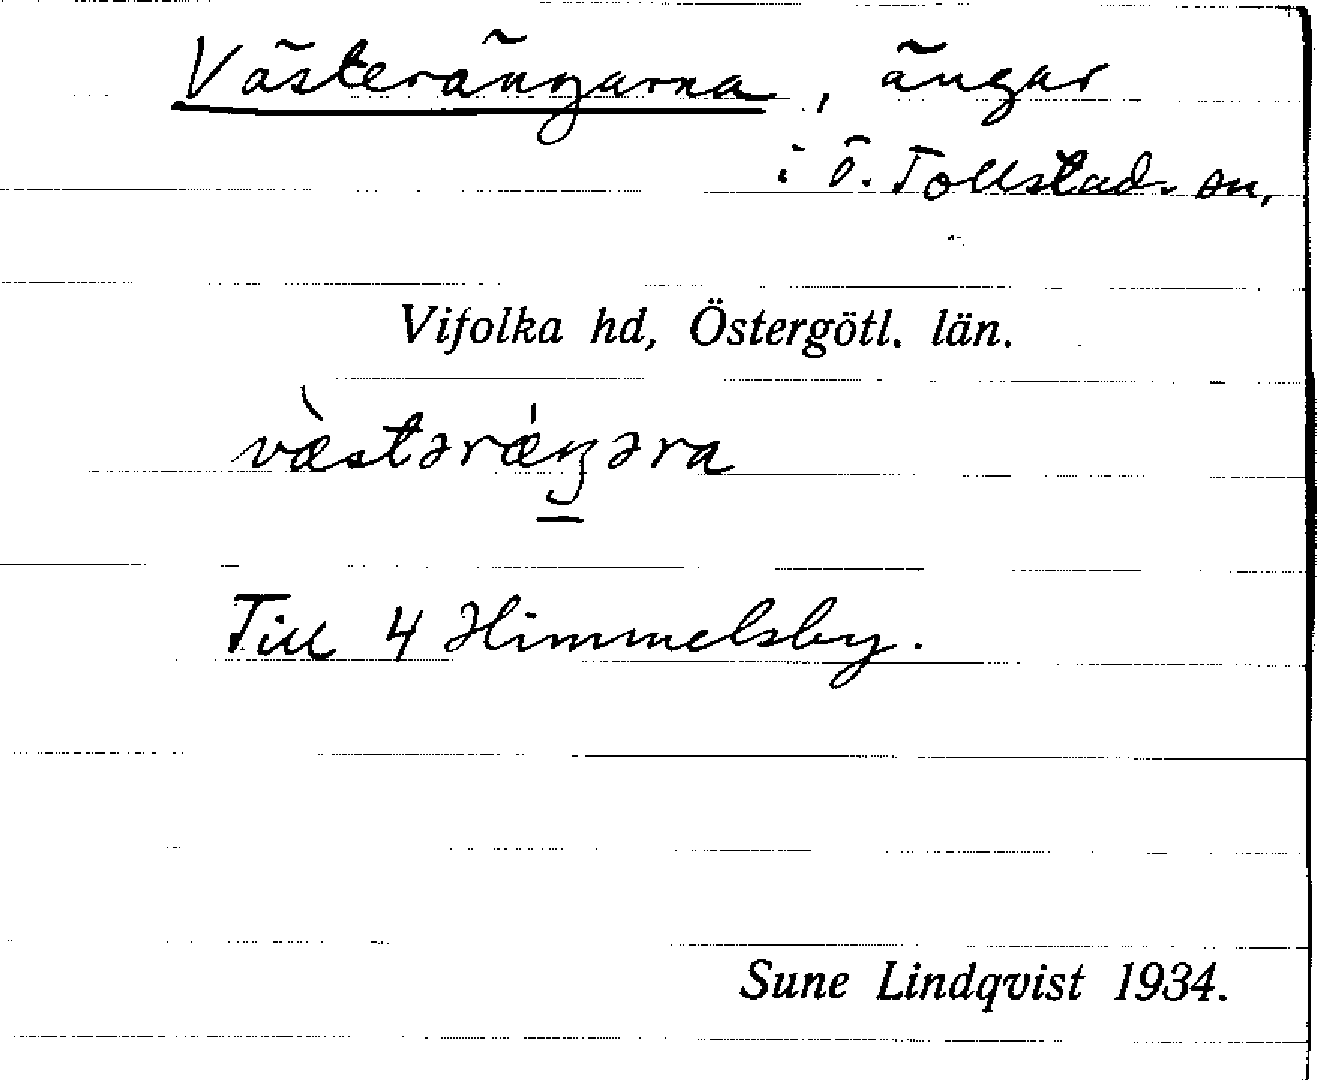 Västerängarna, ängar
i Ö. Tollstad sn,
Vifolka hd, Östergötl. län.
væ̀stərǽŋəra
Till 4 Himmelsby.
Sune Lindqvist 1934.